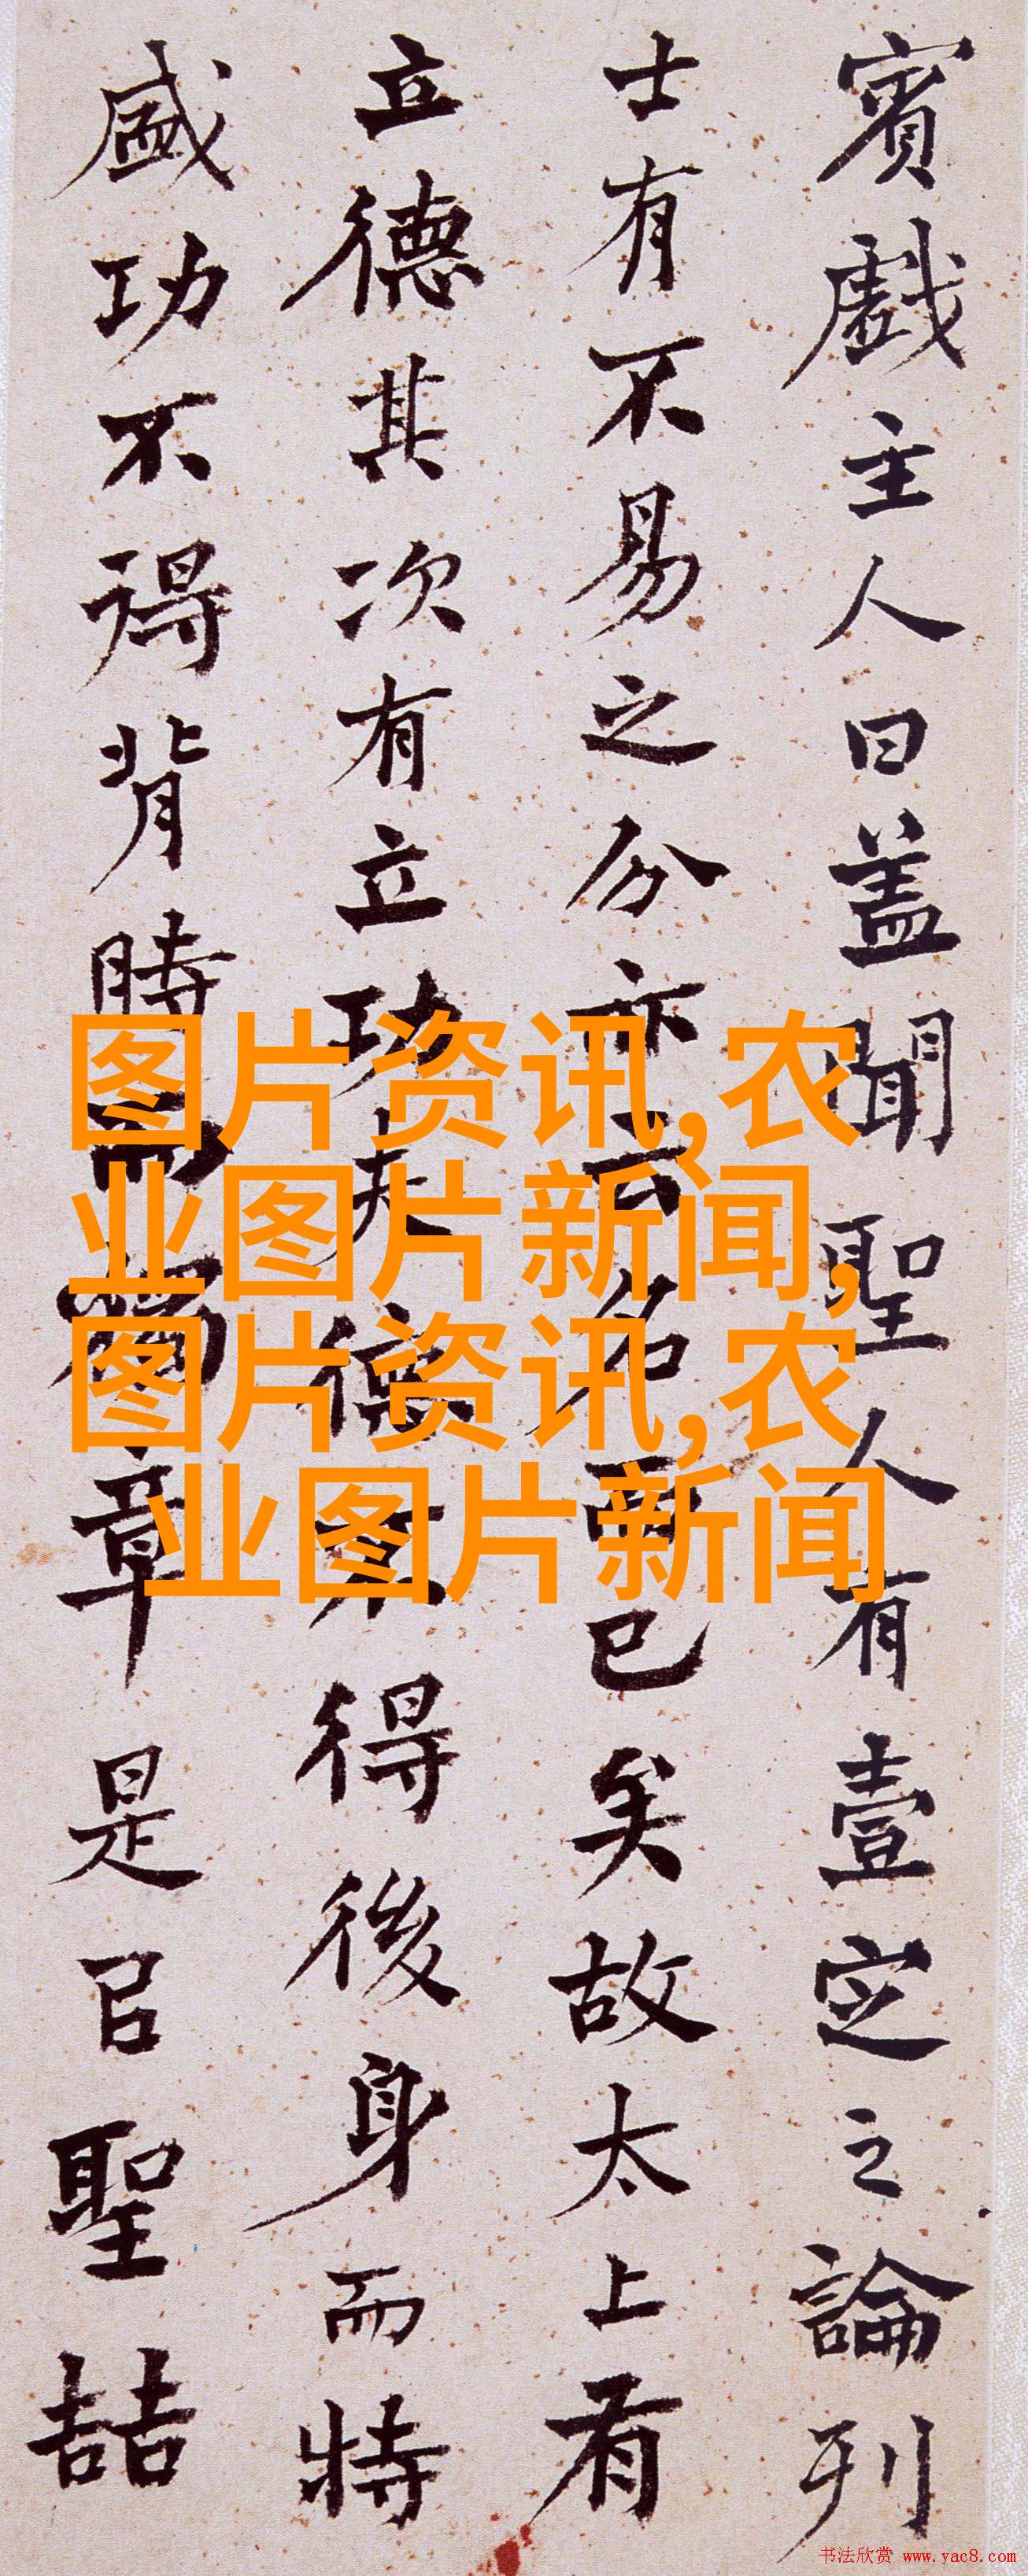 賓戲主人曰盖聞聖人有壹定之論列
士有不易之分亦云名而已矣故太上有
立德其次有立功夫德不得後身而特
盛功不得背時而獨章是㠯聖喆
图片资讯,农
业图片新闻,
图片资讯,农
业图片新闻
书法欣赏 www.yac8.com